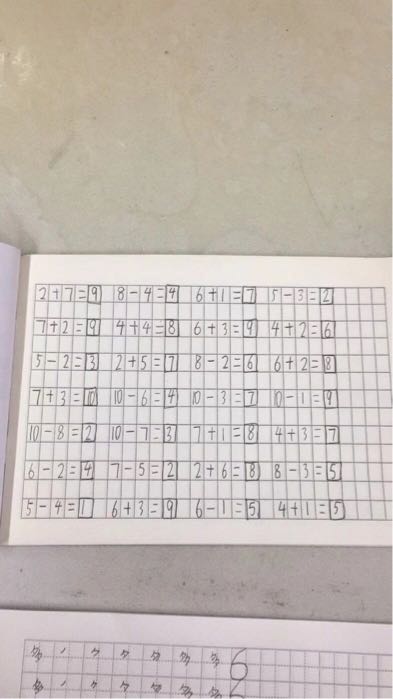 2+7=9 8-4=4 6+1=7 5-3=2
7+2=9 4+4=8 6+3=9 4+2=6
5-2=3 2+5=7 8-2=6 6+2=8
7+3=10 10-6=4 10-3=7 10-1=9
10-8=2 10-7=3 7+1=8 4+3=7
6-2=4 7-5=2 2+6=8 8-3=5
5-4=1 6+3=9 6-1=5 4+1=5